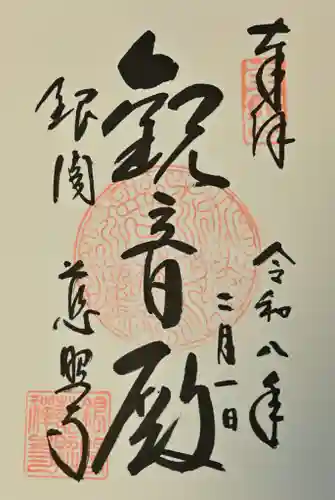 奉拝
令和八年
二月一日
観音殿
銀閣
慈照寺